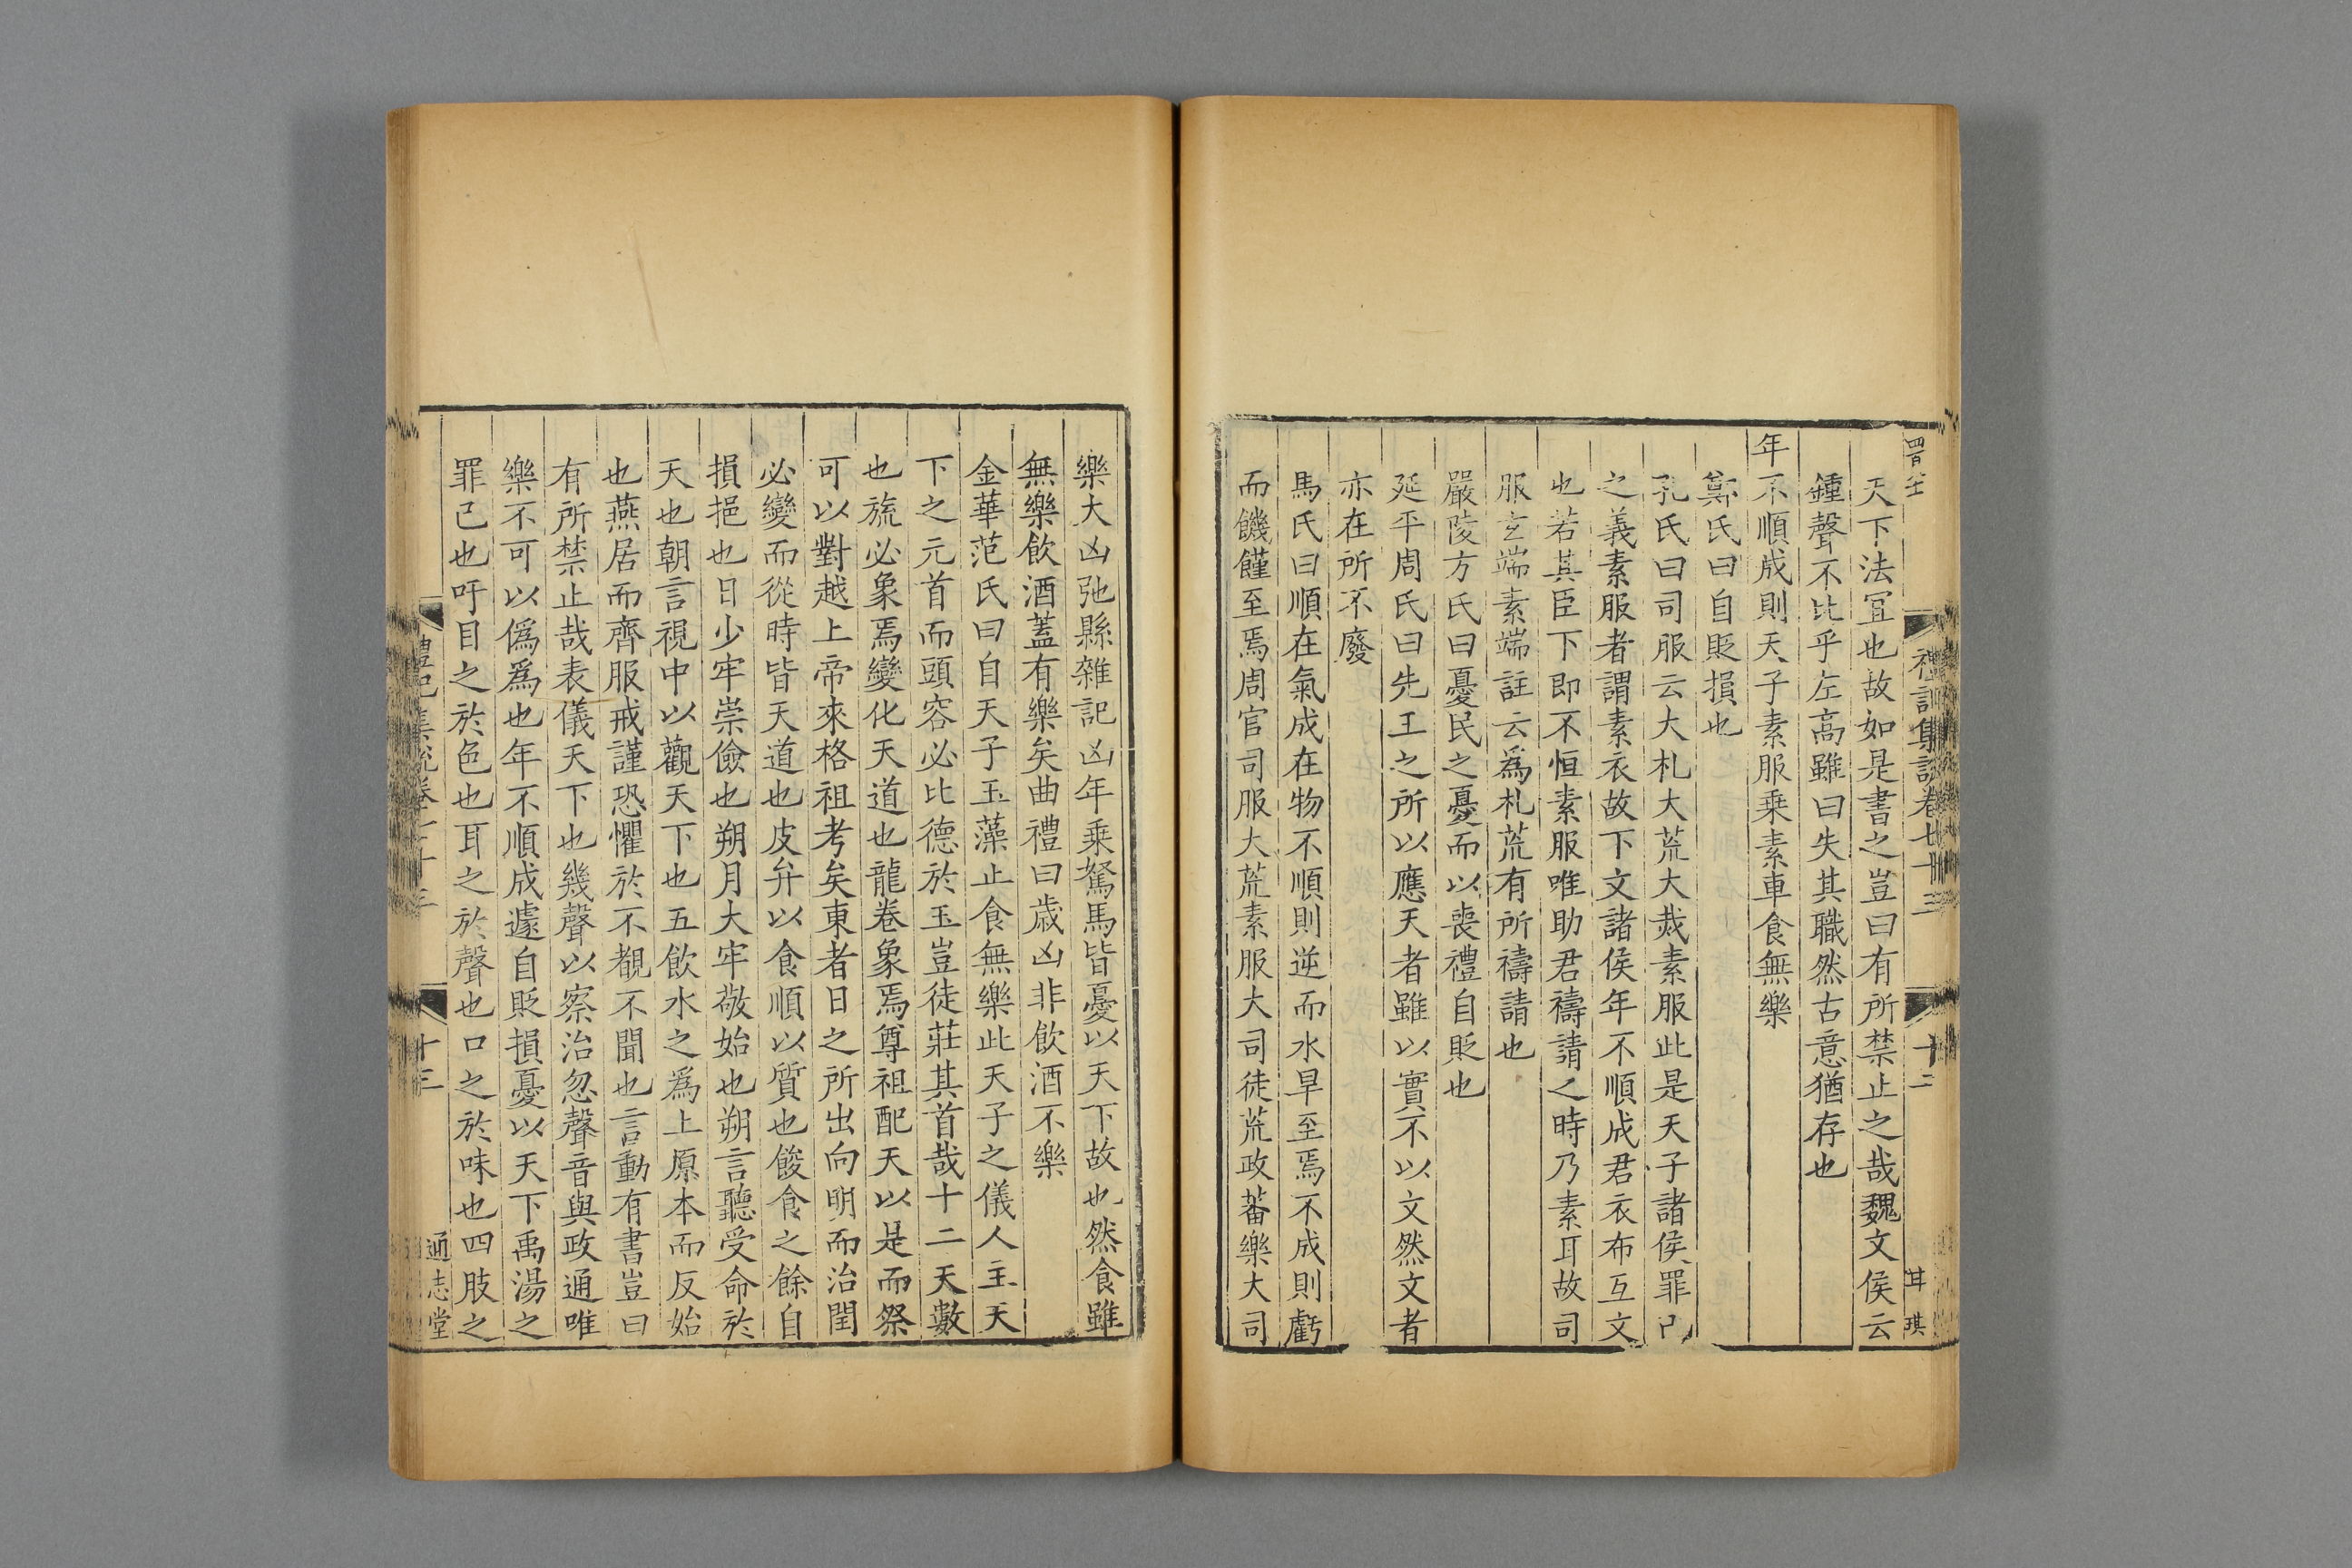 天下法宜也故如是書之豈曰有所禁止之哉魏文侯云
鍾聲不比乎左高雖曰失其職然古意猶存也
年不順成則天子素服乘素車食無樂
鄭氏曰自貶損也
孔氏曰司服云大札大荒大烖素服此是天子諸侯罪己
之義素服者謂素衣故下文諸侯年不順成君衣布互文
也若其臣下即不恒素服唯助君禱請之時乃素耳故司
服玄端素端註云為札荒有所禱請也
嚴陵方氏曰憂民之憂而以喪禮自貶也
延平周氏曰先王之所以應天者雖以實不以文然文者
亦在所不廢
馬氏曰順在氣成在物不順則逆而水旱至焉不成則虧
而饑饉至焉周官司服大荒素服大司徒荒政蕃樂大司
樂大凶弛縣雜記凶年乘駑馬皆憂以天下故也然食雖
無樂飲酒蓋有樂矣曲禮曰歲凶非飲酒不樂
金華范氏曰自天子玉藻止食無樂此天子之儀人主天
下之元首而頭容必比德於玉豈徒莊其首哉十二天數
也旒必象焉變化天道也龍卷象焉尊祖配天以是而祭
可以對越上帝來格祖考矣東者日之所出向明而治閏
必變而從時皆天道也皮弁以食順以質也餕食之餘自
損挹也日少牢崇儉也朔月大牢敬始也朔言聽受命於
天也朝言視中以觀天下也五飲水之為上原本而反始
也燕居而齊服戒謹恐懼於不覩不聞也言動有書豈曰
有所禁止哉表儀天下也幾聲以察治忽聲音與政通唯
樂不可以偽為也年不順成遽自貶損憂以天下禹湯之
罪己也吁目之於色也耳之於聲也口之於味也四肢之
禮記集說卷七十三
十三
通志堂